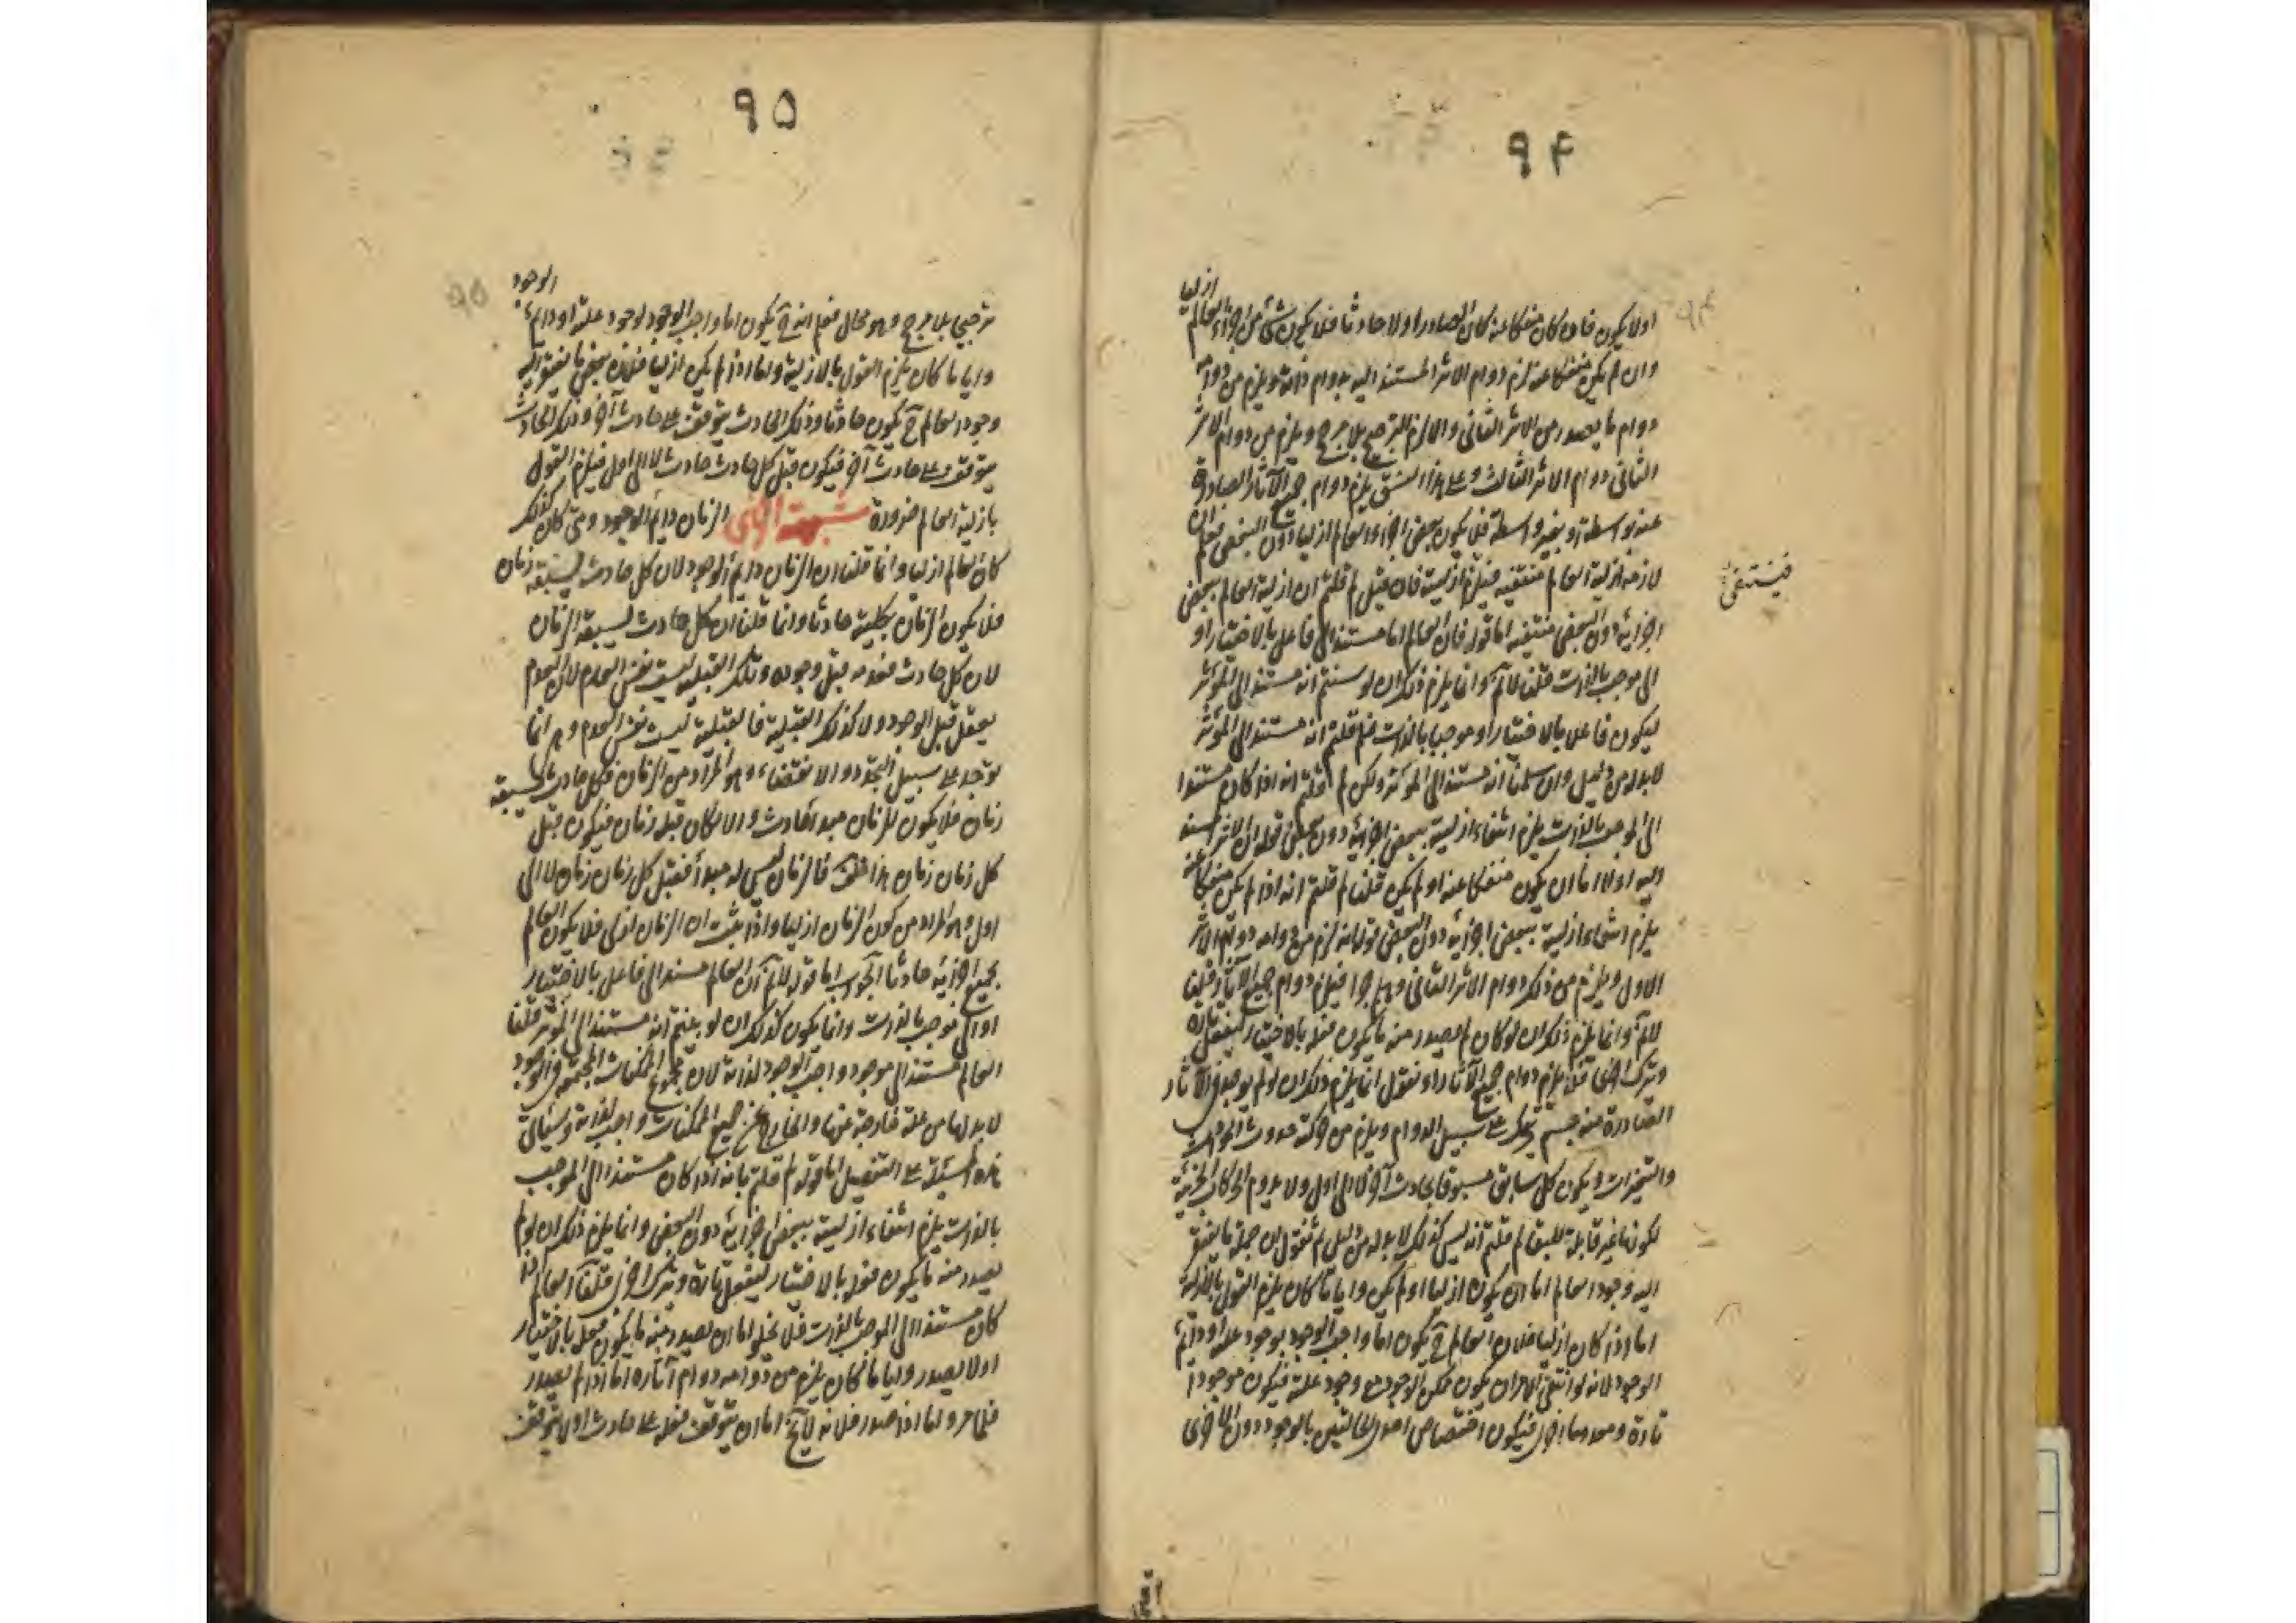 ٩٤
اولا يكون فان كان منفكا عنه كان الصادر اولا حادثا فلا يكون شئ من اجزاء العالم ازليا
وان لم يكن منفكا عنه لزم دوام الاثر المستند اليه بدوام ذاته ويلزم من دوامه
دوام ما يصدر من الاثر الثانى والا لزم الترجيح بلا مرجح ويلزم من دوام الاثر
الثانى دوام الاثر الثالث وعلى هذا النسق يلزم دوام جميع الآثار الصادرة
عنه بواسطة او بغير واسطة فلا يكون بعض اجزاء العالم ازليا دون البعض فعلم ان
لازمه ازلية العالم منتفية فيلزم ازليته فان قيل لم قلتم ان ازلية العالم ببعض
فينتفى
اجزائه دون البعض منتفيه اما قوله فان العالم اما مستند الى فاعل بالاختيار او
الى موجب بالذات قلنا لانم وانما يلزم ذلك ان لو بينتم انه مستند الى المؤثر
ليكون فاعلا بالاختيار او موجبا بالذات فلم قلتم انه مستند الى المؤثر
لابد له من دليل وان سلمنا انه مستند الى المؤثر ولكن لم قلتم انه اذا كان مستندا
الى الموجب بالذات يلزم انتفاء ازليته ببعض اجزائه دون بعض قوله ان الاثر المستند
اليه اولا اما ان يكون منفكا عنه او لم يكن قلنا لم قلتم انه اذا لم يكن منفكا عنه
يلزم انتفاء ازليته ببعض اجزائه دون البعض قوله لانه لزم من دوامه دوام الاثر
الاول ويلزم من ذلك دوام الاثر الثانى وهلم جرا فيلزم دوام جميع الآثار قلنا
لانم وانما يلزم ذلك ان لو كان لم يصدر منه ما يكون فعله بالاختيار ليفعل تارة
ويترك اخرى فلا يلزم دوام جميع الآثار او نقول انما يلزم ذلك ان لو لم يوجد فى الآثار
الصادرة منه جسم متحرك على سبيل الدوام ويلزم من حركته حدوث الحوادث
والتغيرات ويكون كل سابق مسبوقا بحادث آخر لا الى اول ولا يدوم الحركات الجزئية
لكونها غير قابلة للبقاء لم قلتم انه ليس كذلك لابد له من دليل ثم نقول ان جملة ما يفتقر
اليه وجود العالم اما ان يكون ازليا او لم يكن وايا ما كان يلزم القول بالازلية
اما اذا كان ازليا فلان العالم ح يكون اما واجب الوجود بوجود علته او دايم
الوجود لانه لو انتفى الامران يكون ممكن الوجود مع وجود علته فيكون موجودا
تارة ومعدوما اخرى فيكون اختصاص احدى الحالتين بالوجود دون الاخرى
٩٥
ترجيحا بلا مرجح وهو محال فعلم انه ح يكون اما واجب الوجود لوجود علته او دايم الوجود
وايا ما كان يلزم القول بالازلية واما اذا لم يكن ازليا فلان بعض ما يفتقر اليه
وجود العالم ح يكون حادثا وذلك الحادث يتوقف على حادث آخر وذلك الحادث
يتوقف على حادث آخر فيكون قبل كل حادث حادث لا الى اول فيلزم القول
بازلية العالم ضرورة شبهة اخرى الزمان دايم الوجود ومتى كان كذلك
كان العالم ازليا وانما قلنا ان الزمان دايم الوجود لان كل حادث يسبقه زمان
فلا يكون الزمان بكليته حادثا وانما قلنا ان كل حادث يسبقه الزمان
لان كل حادث فعدمه قبل وجوده وتلك القبلية ليست نفس العدم لان العدم
يعقل قبل الوجود ولا كذلك القبلية فالقبلية ليست نفس العدم وهى انما
توجد على سبيل التجدد والانقضاء وهو المراد من الزمان فكل حادث يسبقه
زمان فلا يكون للزمان مبدأ حادث والا لكان قبله زمان فيكون قبل
كل زمان زمان هذا خلف فالزمان ليس له مبدأ فقبل كل زمان زمان لا الى
اول وهو المراد من كون الزمان ازليا واذا ثبت ان الزمان ازلى فلا يكون العالم
بجميع اجزائه حادثا الجواب اما قوله لانم ان العالم مستند الى فاعل بالاختيار
او الى موجب بالذات وانما يكون كذلك ان لو بينتم انه مستند الى المؤثر قلنا
العالم مستند الى موجود واجب الوجود لذاته لان مجموع الممكنات المجتمعة فى الوجود
لابد لها من علة خارجة عنها والخارج عن جميع الممكنات واجب لذاته وسيأتى
هذه المسئلة على التفصيل اما قوله لم قلتم بانه اذا كان مستندا الى الموجب
بالذات يلزم انتفاء ازليته ببعض اجزائه دون البعض وانما يلزم ذلك ان لو لم
يصدر منه ما يكون فعله بالاختيار ليفعل تارة ويترك اخرى قلنا العالم اذا
كان مستندا الى الموجب بالذات فلا يخلو اما ان يصدر منه ما يكون فعله بالاختيار
اولا يصدر وايا ما كان يلزم من دوامه دوام آثاره اما اذا لم يصدر
فظاهر واما اذا صدر فلانه لا يخ اما ان يتوقف فعله على حادث او لا يتوقف